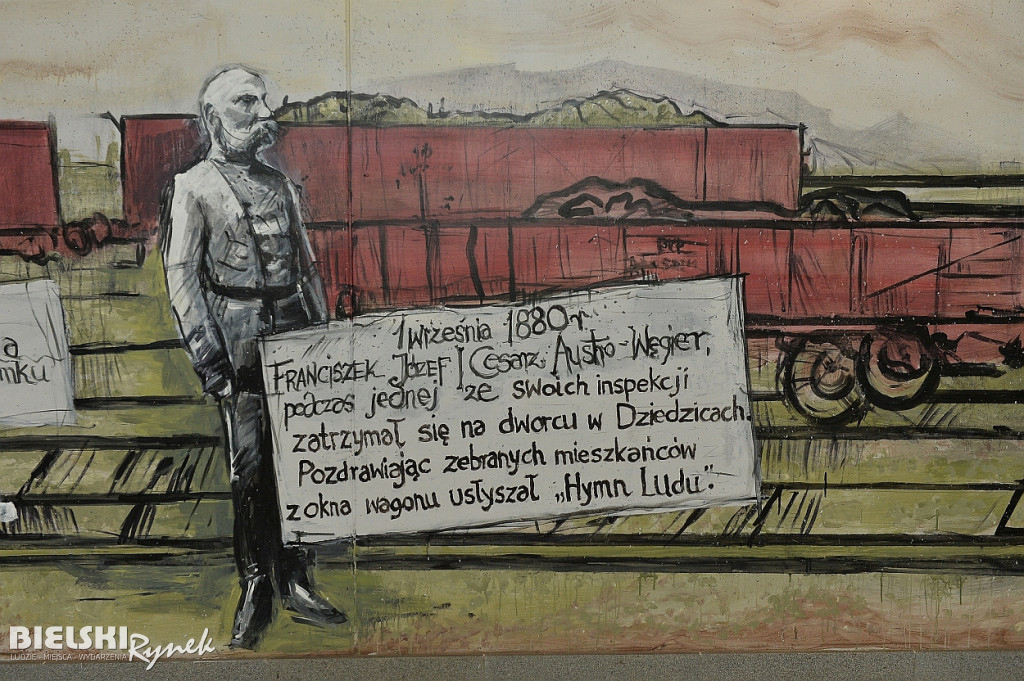 a
mku
1 września 1880 r.
Franciszek Józef I Cesarz Austro-Węgier,
podczas jednej ze swoich inspekcji
zatrzymał się na dworcu w Dziedzicach.
Pozdrawiając zebranych mieszkańców
z okna wagonu usłyszał „Hymn Ludu".
BIELSKI Rynek
LUDZIE - MIEJSCA - WYDARZENIA